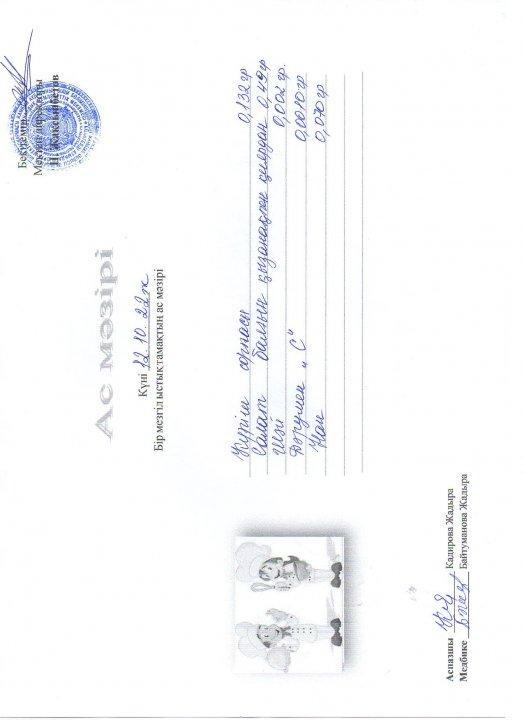 Бекітемін
Мектеп директоры
Н. Жаксыбаетов
Ас мәзірі
Күні 12.10.22ж
Бір мезгіл ыстықтамақтың ас мәзірі
Күріш сорпасы 0,132 гр
Салат балғын қызанақпен қиярдан 0,49 гр
Шәй 0,002 гр.
Дәрумен „С" 0,0010 гр
Нан 0,070 гр
Аспазшы Кадирова Жадыра
Медбике Байтуманова Жадыра